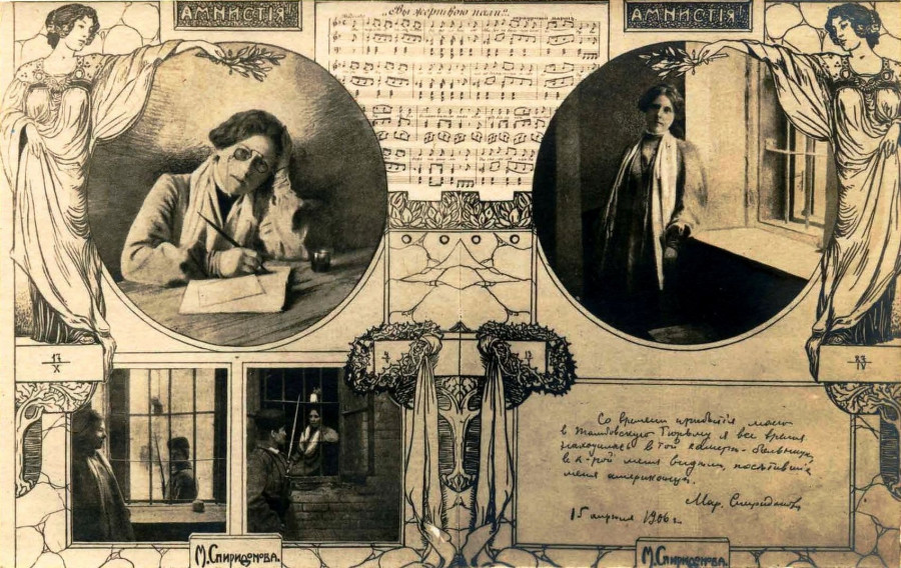 АМНИСТІЯ!
„Вы жертвою пали“..
АМНИСТІЯ!
17
X
27
IV
Со времени прибытія моего
в Тамбовскую Тюрьму я все время
находилась в той камере-больнице,
в к-рой меня видели, посѣтившіе
меня американцы.
Мар. Спиридонова
15 апреля 1906 г.
М. Спиридонова.
М. Спиридонова.